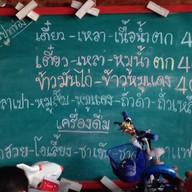 เตี๋ยว-เหลา-เนื้อน้ำตก 4
เตี๋ยว-เหลา-หมูน้ำตก 4
ข้าวมันไก่-ข้าวหมูแดง 40
ลาเปา-หมูสับ-หมูแดง-ถั่วดำ-ถั่วเหลื
เครื่องดื่ม
โอเลี้ยง-ชาเย็น